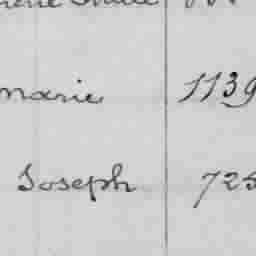 marie 1139
Joseph 725